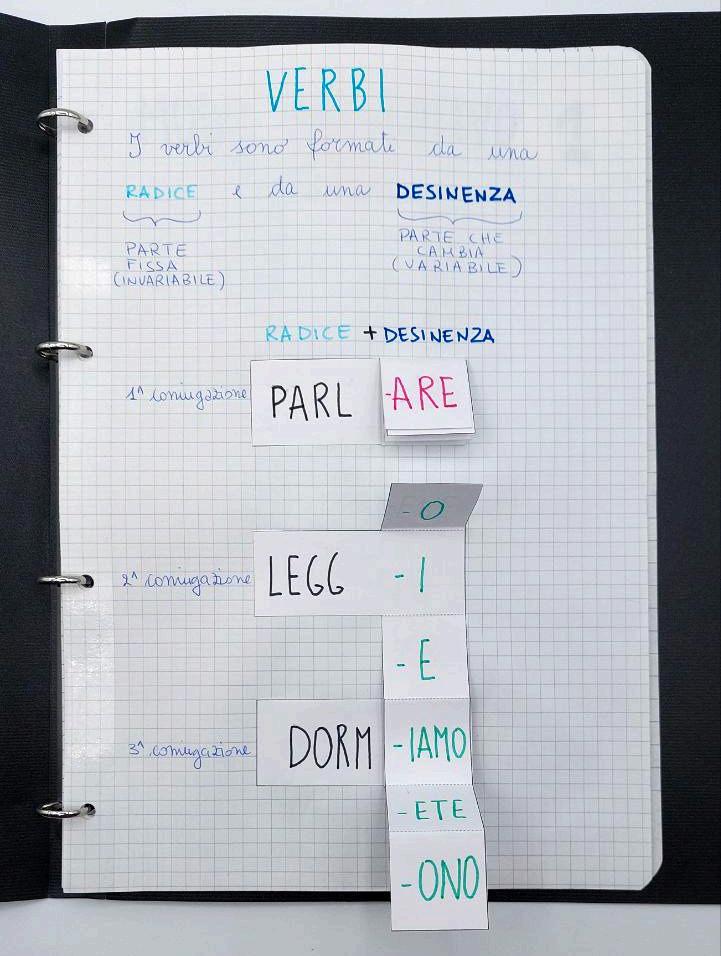 VERBI
I verbi sono formati da una
RADICE e da una DESINENZA
PARTE
FISSA
(INVARIABILE)
PARTE CHE
CAMBIA
(VARIABILE)
RADICE + DESINENZA
1^ coniugazione PARL -ARE
-O
2^ coniugazione LEGG -I
-E
3^ coniugazione DORM -IAMO
-ETE
-ONO